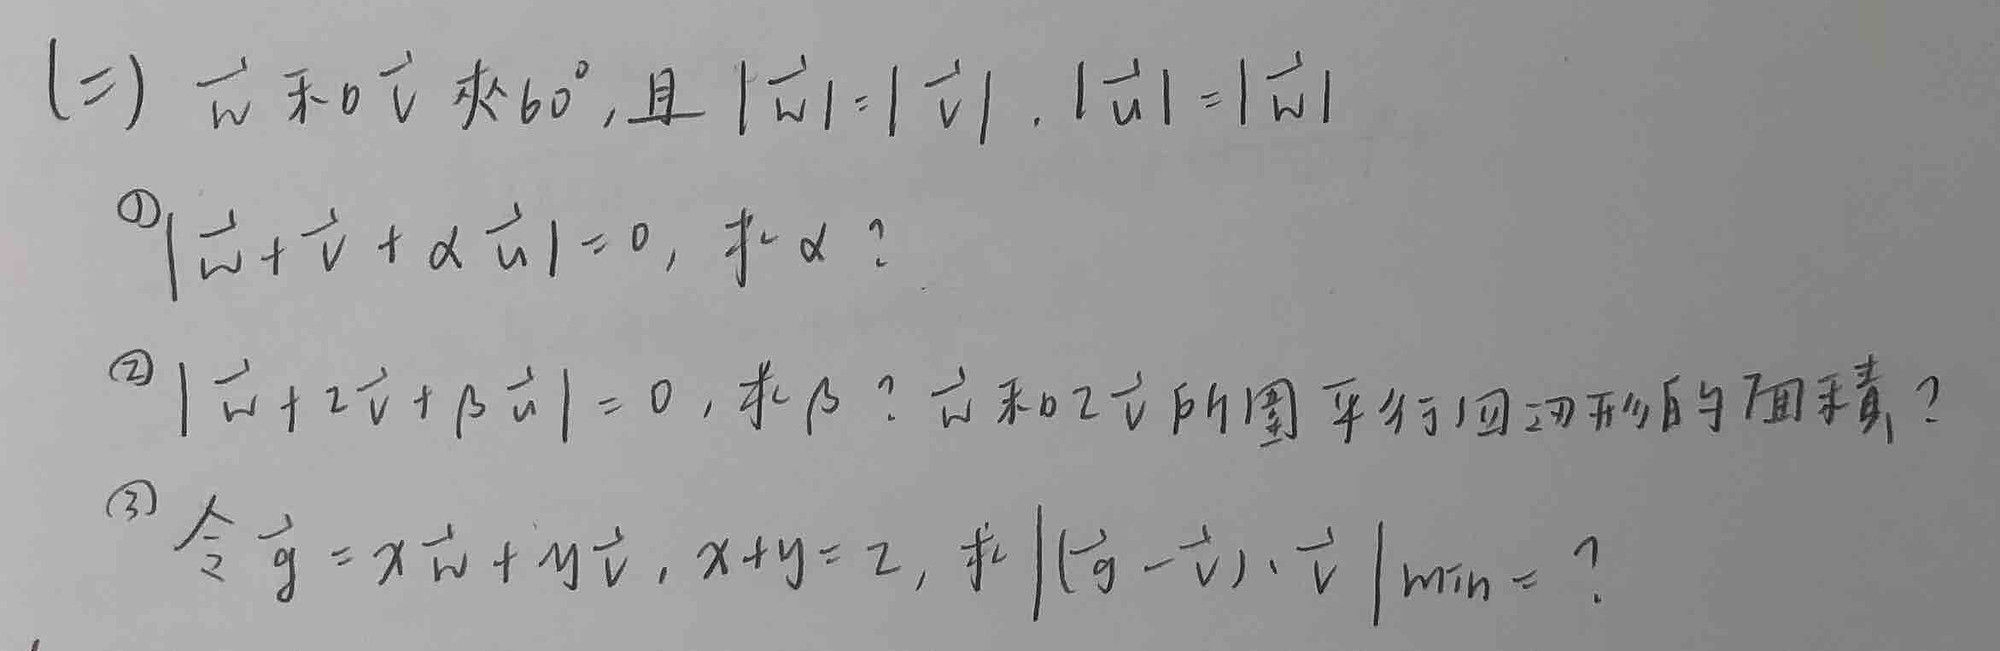 (二) w⃗ 和 v⃗ 夾60°, 且 |w⃗|=|v⃗|. |u⃗|=|w⃗|
① |w⃗+v⃗+αu⃗|=0, 求α?
② |w⃗+2v⃗+βu⃗|=0, 求β? w⃗ 和 2v⃗ 所圍平行四边形的面積?
③ 令 g⃗=xw⃗+yv⃗, x+y=2, 求 |(g⃗-v⃗)·v⃗|min=?